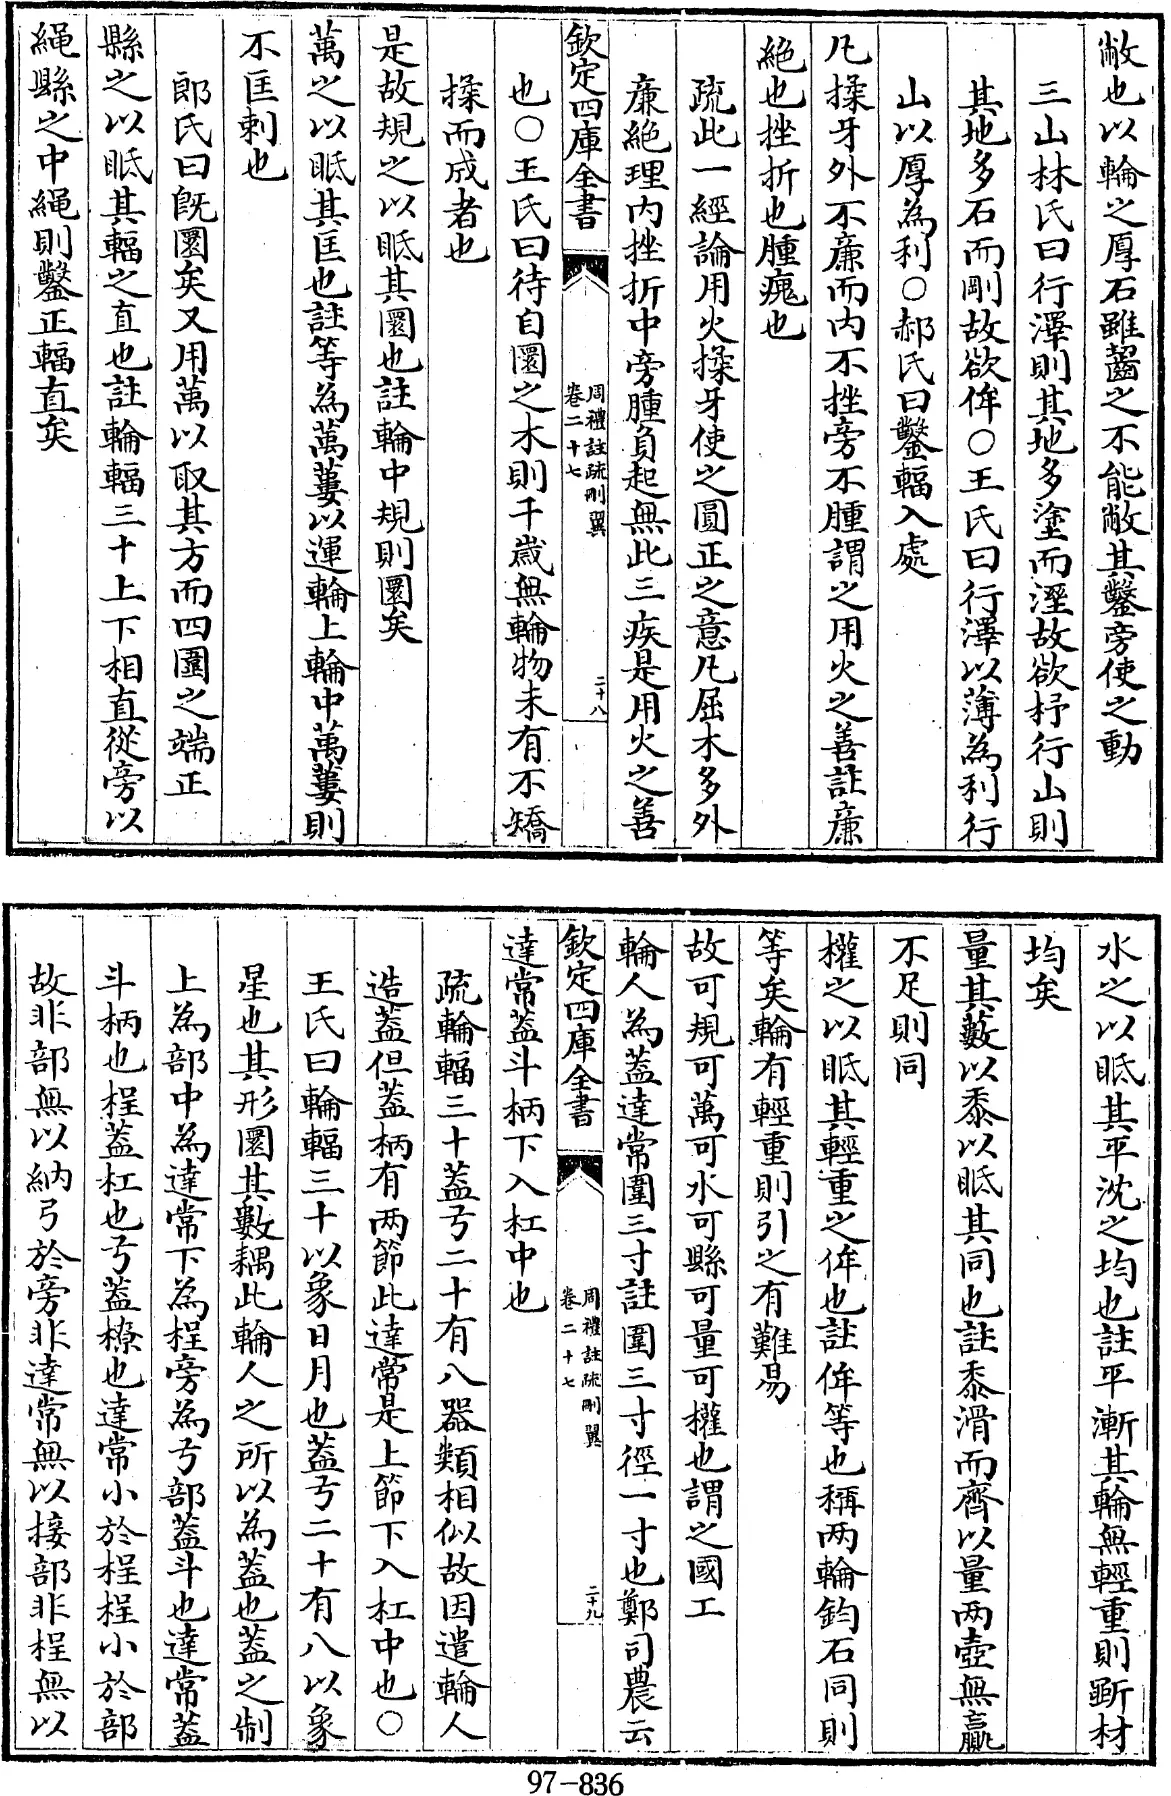 敝也以輪之厚石雖齧之不能敝其鑿旁使之動
三山林氏曰行澤則其地多塗而溼故欲杼行山則
其地多石而剛故欲侔○王氏曰行澤以薄為利行
山以厚為利○郝氏曰鑿輻入處
凡揉牙外不亷而内不挫旁不腫謂之用火之善註亷
絶也挫折也腫瘣也
疏此一經論用火揉牙使之圓正之意凡屈木多外
亷絶理内挫折中旁腫負起無此三疾是用火之善
欽定四庫全書
周禮註疏刪翼
卷二十七
二十八
也○王氏曰待自圜之木則千歳無輪物未有不矯
揉而成者也
是故規之以眡其圜也註輪中規則圜矣
萬之以眡其匡也註等為萬蔞以運輪上輪中萬蔞則
不匡刺也
郎氏曰既圜矣又用萬以取其方而四圍之端正
縣之以眡其輻之直也註輪輻三十上下相直從旁以
繩縣之中繩則鑿正輻直矣
水之以眡其平沈之均也註平漸其輪無輕重則斵材
均矣
量其藪以黍以眡其同也註黍滑而齊以量两壺無贏
不足則同
權之以眡其輕重之侔也註侔等也稱两輪鈞石同則
等矣輪有輕重則引之有難易
故可規可萬可水可縣可量可權也謂之國工
輪人為蓋達常圍三寸註圍三寸徑一寸也鄭司農云
欽定四庫全書
周禮註疏刪翼
卷二十七
二十九
達常蓋斗柄下入杠中也
疏輪輻三十蓋弓二十有八器類相似故因遣輪人
造蓋但蓋柄有两節此達常是上節下入杠中也○
王氏曰輪輻三十以象日月也蓋弓二十有八以象
星也其形圜其數耦此輪人之所以為蓋也蓋之制
上為部中為達常下為桯旁為弓部蓋斗也達常蓋
斗柄也桯蓋杠也弓蓋橑也達常小於桯桯小於部
故非部無以納弓於旁非達常無以接部非桯無以
97-836